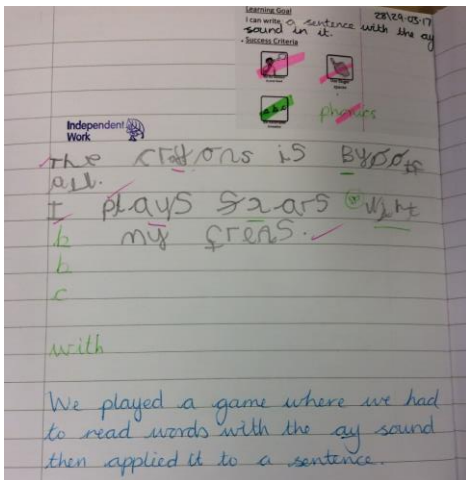 Learning Goal
28/29-03-17
I can write a sentence with the ay
sound in it.
Success Criteria
phonics
Independent
Work
The crayons is
all.
I plays
my frens.
b
b
c
with
We played a game where we had
to read words with the ay sound
then applied it to a sentence.